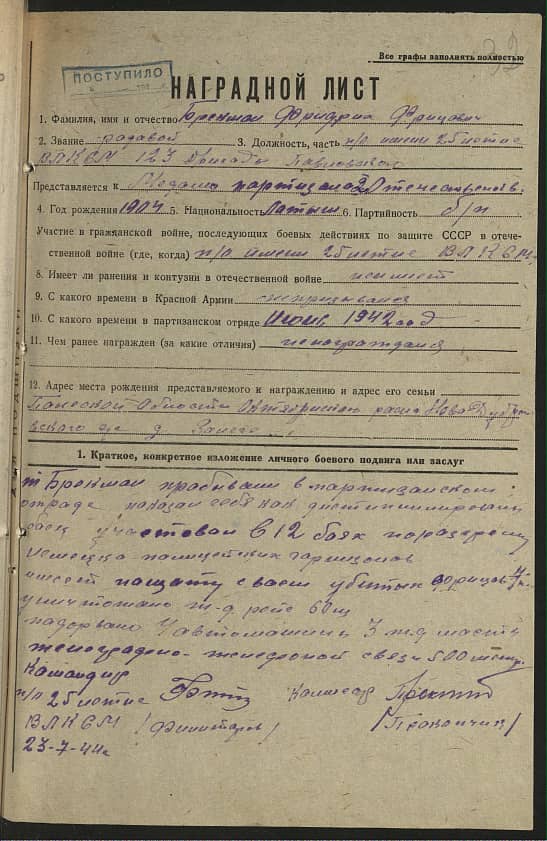 32
Все графы заполнять полностью
ПОСТУПИЛО
НАГРАДНОЙ ЛИСТ
1. Фамилия, имя и отчество Брекман Фридрих Фрицович
2. Звание радавой 3. Должность, часть п/о имени 25 летие
ВЛКСМ 123 бригады
Представляется к Медали партизана Отечествен в.
4. Год рождения 1904 5. Национальность Латыш 6. Партийность б/п
Участие в гражданской войне, последующих боевых действиях по защите СССР в отече-
ственной войне (где, когда) п/о имени 25 летие ВЛКСМ
8. Имеет ли ранения и контузии в отечественной войне неимеет
9. С какого времени в Красной Армии непризывался
10. С какого времени в партизанском отряде Июнь 1942 год
11. Чем ранее награжден (за какие отличия) ненаграждался
12. Адрес места рождения представляемого к награждению и адрес его семьи
Полеской области Октябрьского Ново Дубро
вского с/с д
1. Краткое, конкретное изложение личного боевого подвига или заслуг
т Брекман пребывании в партизанском
отряде показал себя как
боец участвовал в 12 боях по разгрому
немецко полицейских гарнизонов
имеет на щоту своем убитых фрицов
уничтожено ж-д рельс 60 щ
падорвано автомашины 3 ж-д моста
телеграфно-телефоной связи 500
Командир
п/о 25 летие Комисар
ВЛКСМ
23-7-44г